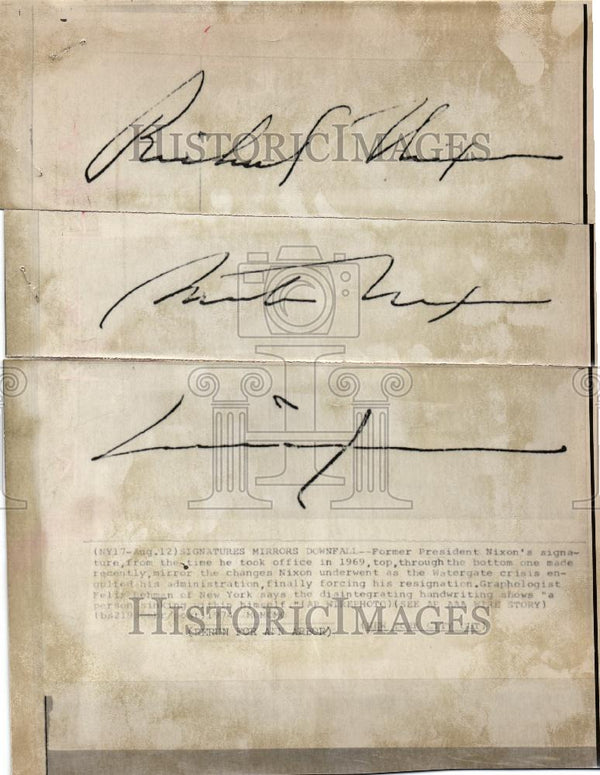 Richard Nixon
HISTORIC IMAGES
(NY17-Aug.12)SIGNATURES MIRRORS DOWNFALL--Former President Nixon's signa-
ture,from the time he took office in 1969,top,through the bottom one made
recently,mirror the changes Nixon underwent as the Watergate crisis en-
gulfed his administration,finally forcing his resignation.Graphologist
Felix Lehmen of New York says the disintegrating handwriting shows "a
person sinking himself (AP WIREPHOTO)(SEE AP STORY)
HISTORIC IMAGES
(RERUN FOR ANN ARBOR)